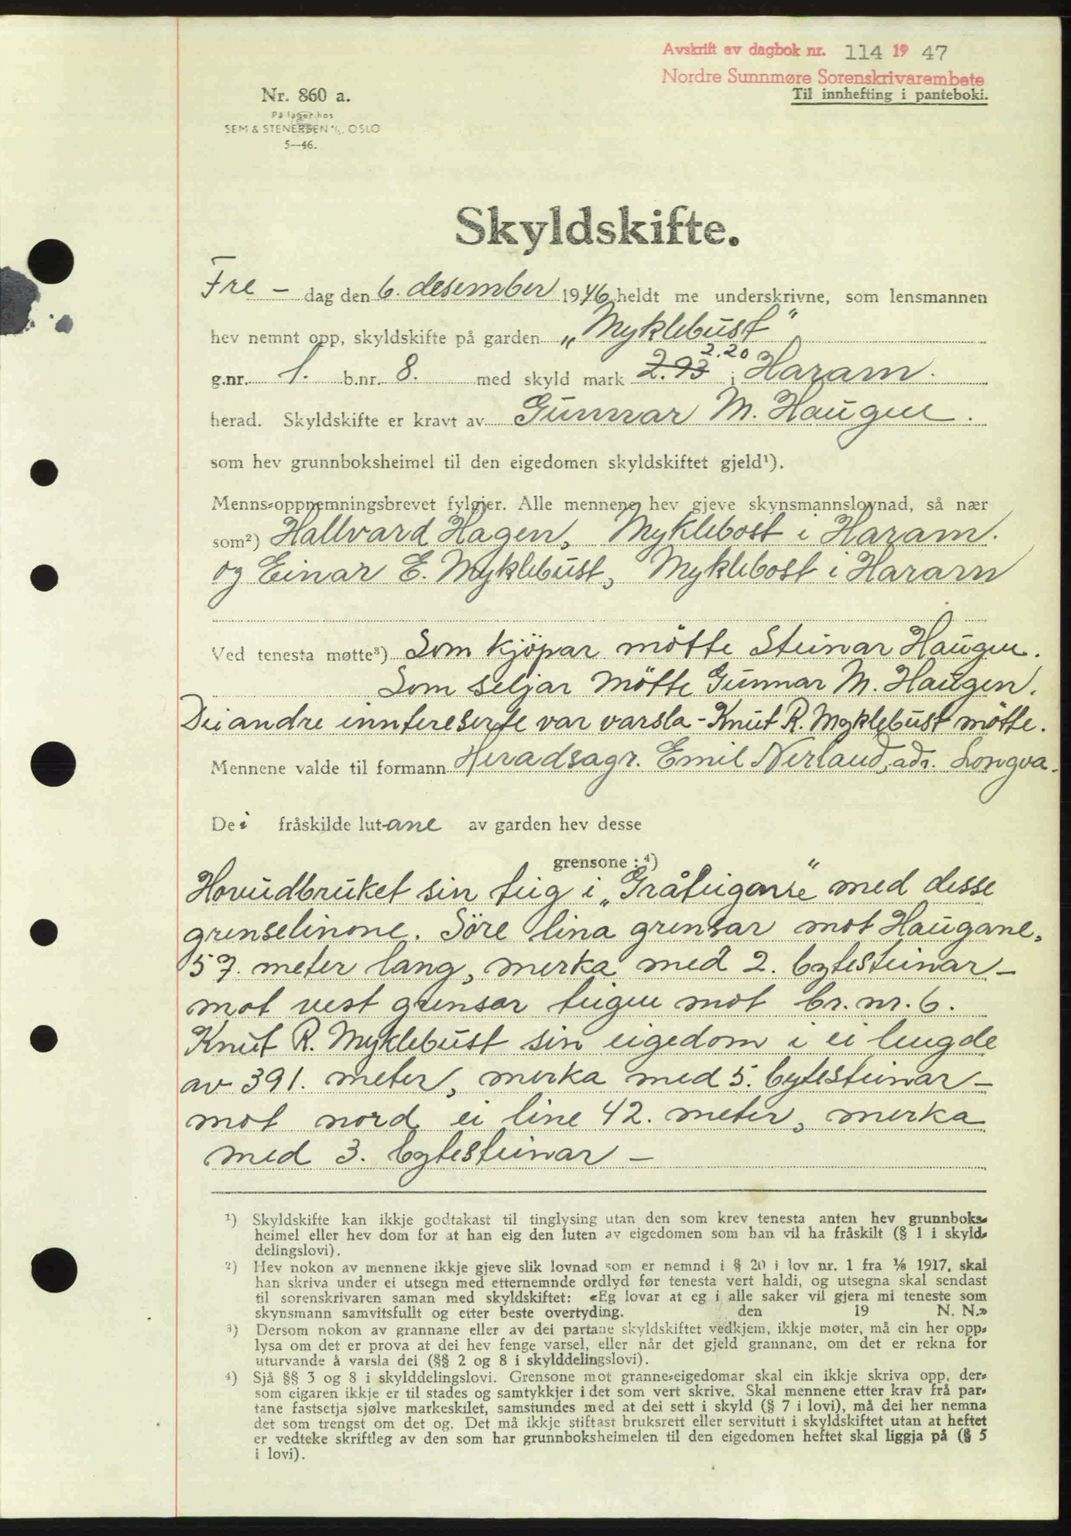 Avskrift av dagbok nr. 114 19 47
Nordre Sunnmøre Sorenskrivarembete
Til innhefting i panteboki.
Nr. 860 a.
På lager hos
SEM & STENERSEN A/S. OSLO
5—46.
Skyldskifte.
Fre - dag den 6. desember 1946 heldt me underskrivne, som lensmannen
hev nemnt opp, skyldskifte på garden „Myklebust"
g.nr. 1. b.nr. 8. med skyld mark 2.93 2.20 i Haram.
herad. Skyldskifte er kravt av Gunnar M. Haugen.
som hev grunnboksheimel til den eigedomen skyldskiftet gjeld¹).
Menns-oppnemningsbrevet fylgjer. Alle mennene hev gjeve skynsmannslovnad, så nær
som²) Hallvard Hagen, Myklebost i Haram.
og Einar E. Myklebust, Myklebost i Haram
Ved tenesta møtte³) Som kjöpar mötte Steinar Haugen.
Som seljar mötte Gunnar M. Haugen.
Dei andre inntereserte var varsla - Knut R. Myklebust mötte.
Mennene valde til formann Heradsagr. Emil Nerland, adr. Longva.
Dei fråskilde lut-ane av garden hev desse
grensone: ⁴)
Hovudbruket sin teig i „Gråteigane" med desse
grenselinone. Söre lina grensar mot Haugane,
57. meter lang, merka med 2. bytesteinar -
mot vest grensar teigen mot br. nr. 6.
Knut R. Myklebust sin eigedom i ei lengde
av 391. meter, merka med 5. bytesteinar -
mot nord ei line 42. meter, merka
med 3. bytesteinar -
¹) Skyldskifte kan ikkje godtakast til tinglysing utan den som krev tenesta anten hev grunnboks-
heimel eller hev dom for at han eig den luten av eigedomen som han vil ha fråskilt (§ 1 i skyld-
delingslovi).
²) Hev nokon av mennene ikkje gjeve slik lovnad som er nemnd i § 20 i lov nr. 1 fra 1/6 1917, skal
han skriva under ei utsegn med etternemnde ordlyd før tenesta vert haldi, og utsegna skal sendast
til sorenskrivaren saman med skyldskiftet: «Eg lovar at eg i alle saker vil gjera mi teneste som
skynsmann samvitsfullt og etter beste overtyding. den 19 N. N.»
³) Dersom nokon av grannane eller av dei partane skyldskiftet vedkjem, ikkje møter, må ein her opp-
lysa om det er prova at dei hev fenge varsel, eller når det gjeld grannane, om det er rekna for
uturvande å varsla dei (§§ 2 og 8 i skylddelingslovi).
⁴) Sjå §§ 3 og 8 i skylddelingslovi. Grensone mot granne-eigedomar skal ein ikkje skriva opp, der-
som eigaren ikkje er til stades og samtykkjer i det som vert skrive. Skal mennene etter krav frå par-
tane fastsetja sjølve markeskilet, samstundes med at dei sett i skyld (§ 7 i lovi), må dei her nemna
det som trengst om det og. Det må ikkje stiftast bruksrett eller servitutt i skyldskiftet utan at heftet
er vedteke skriftleg av den som har grunnboksheimelen til den eigedomen heftet skal liggja på (§ 5
i lovi).